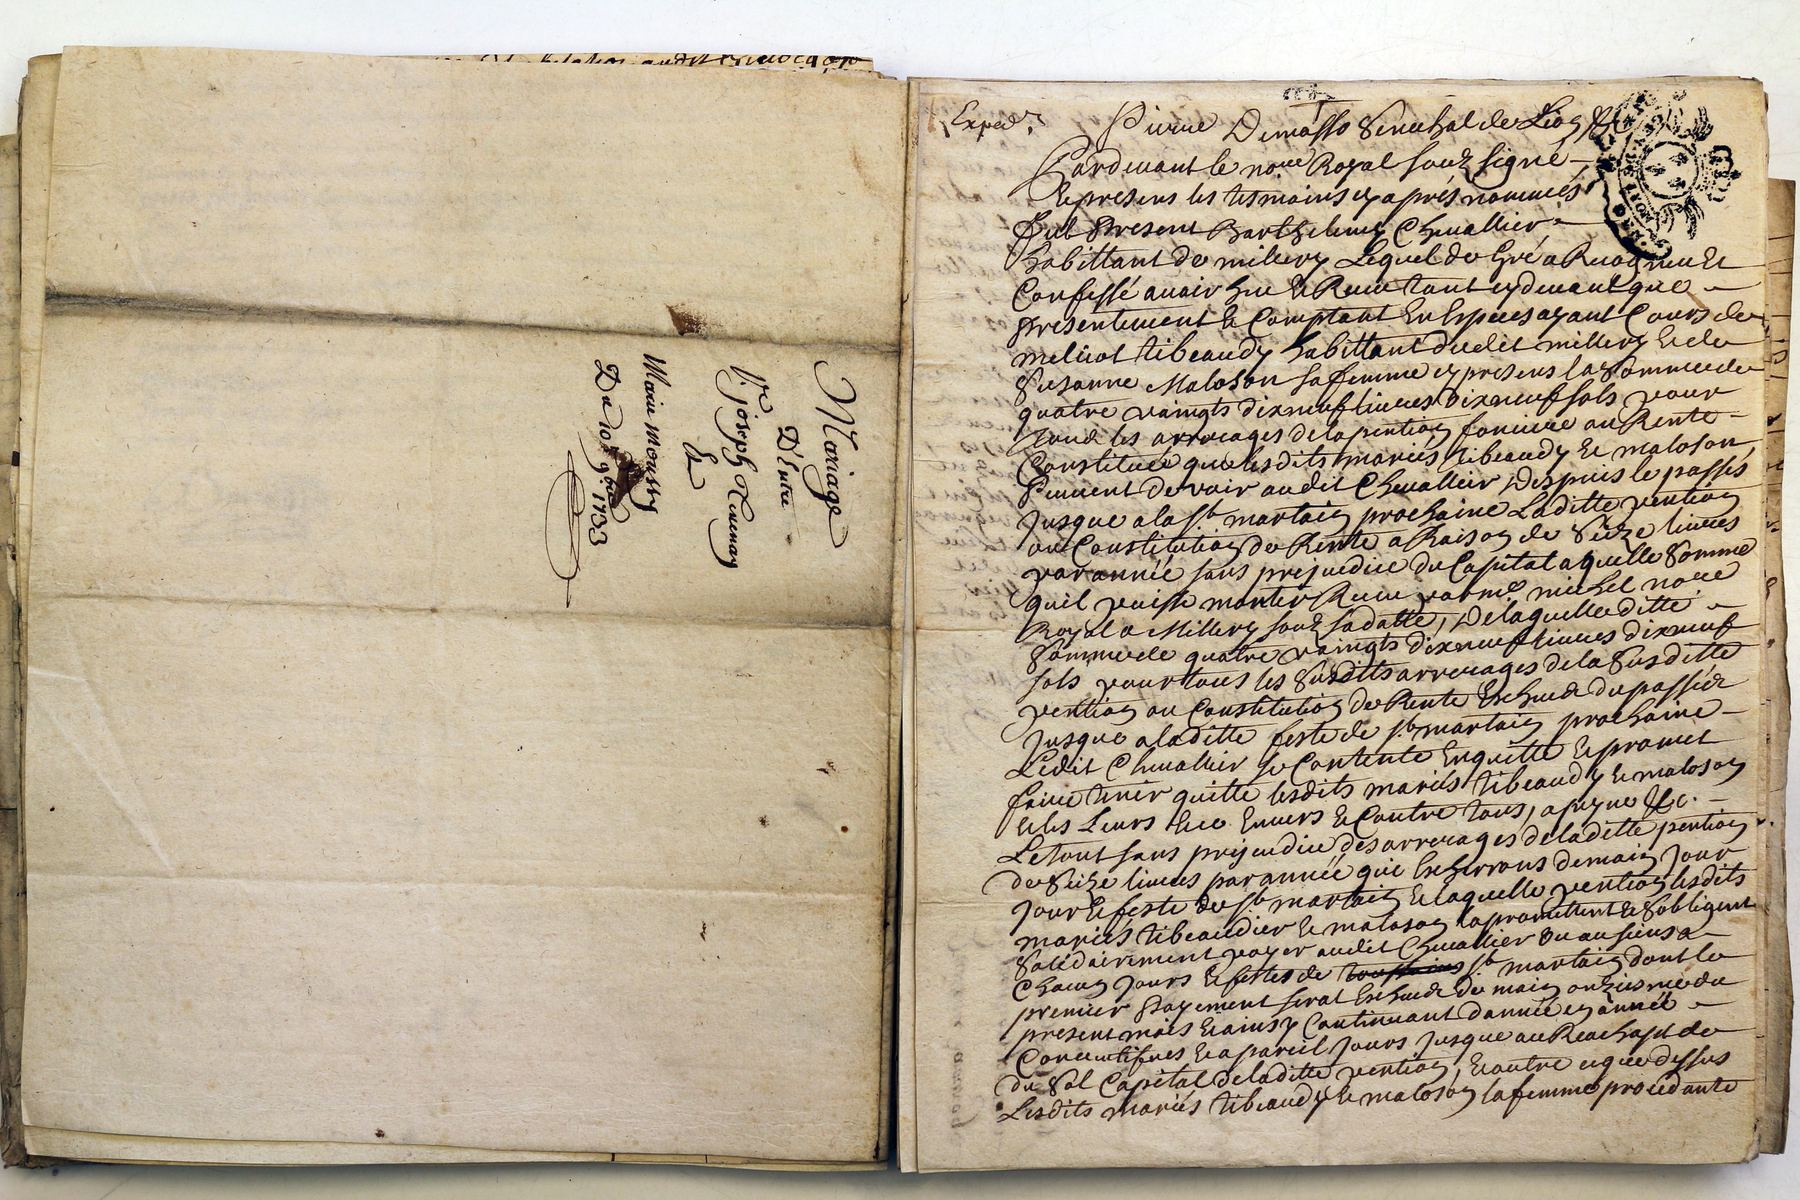 Mariage
D'Entre
Sr. joseph Tevenay
&
Marie moussy
Du 10e 9bre 1733
Exped.
Pierre Demasso Senechal de Lion &c
Pardevant le nore Royal souz signé
& presens les tesmoins cy apres nommés
fut Present Barthelemy Chevallier
habittant de millery Lequel de Gré a Recogneu Et
Confessé avoir heu & Receu tant cydevant que
Presentement & Comptant En Especes ayant Cours de
tibeaudy habittant dudit millery & de
Susanne Maloson sa femme cy presens la Somme de
quatre vaingts dixneuf livres dixneuf sols pour
tous les arrerages de la pention fonciere ou Rente
Constituée que lesdits mariés tibeaudy & maloson
Peuvent devoir audit Chevallier, Despuis le passés
Jusque a la St martain prochaine Laditte pention
ou Constitution de Rente a Raison de Seize livres
par année sans prejudice du Capital a quelle Somme
quil puisse monter Receu par me michel nore
Royal a Millery souz sa datte, De laquelle ditte
Somme de quatre vaingts dixneuf livres dixneuf
sols pour tous les Susdits arrerages de la Susditte
pention ou Constitution de Rente Escheue du passée
Jusque a laditte feste de St martain prochaine
Ledit Chevallier se Contente En quitte & promet
faire tenir quitte lesdits mariés tibeaudy & maloson
& les Leurs Envers & Contre tous, a peyne &c.
Le tout sans prejudice des arrerages de laditte pention
de Seize livres par année qui Escherrons demain Jour
Jour & feste de St martain & laquelle pention lesdits
mariés tibeaudier & maloson promettent & Sobligent
Solidairement payer audit Chevallier ou au siens a
Chacun Jours & festes de St martain dont le
premier Payement serat Escheue demain onziesme du
present mois & ainsy Continuant dannée en année
Consecutifves & a pareil Jours Jusque au Reachapt de
du Sol Capital de laditte pention, & outre ce que dessus
Lesdits mariés tibeaudy & maloson la femme procedante